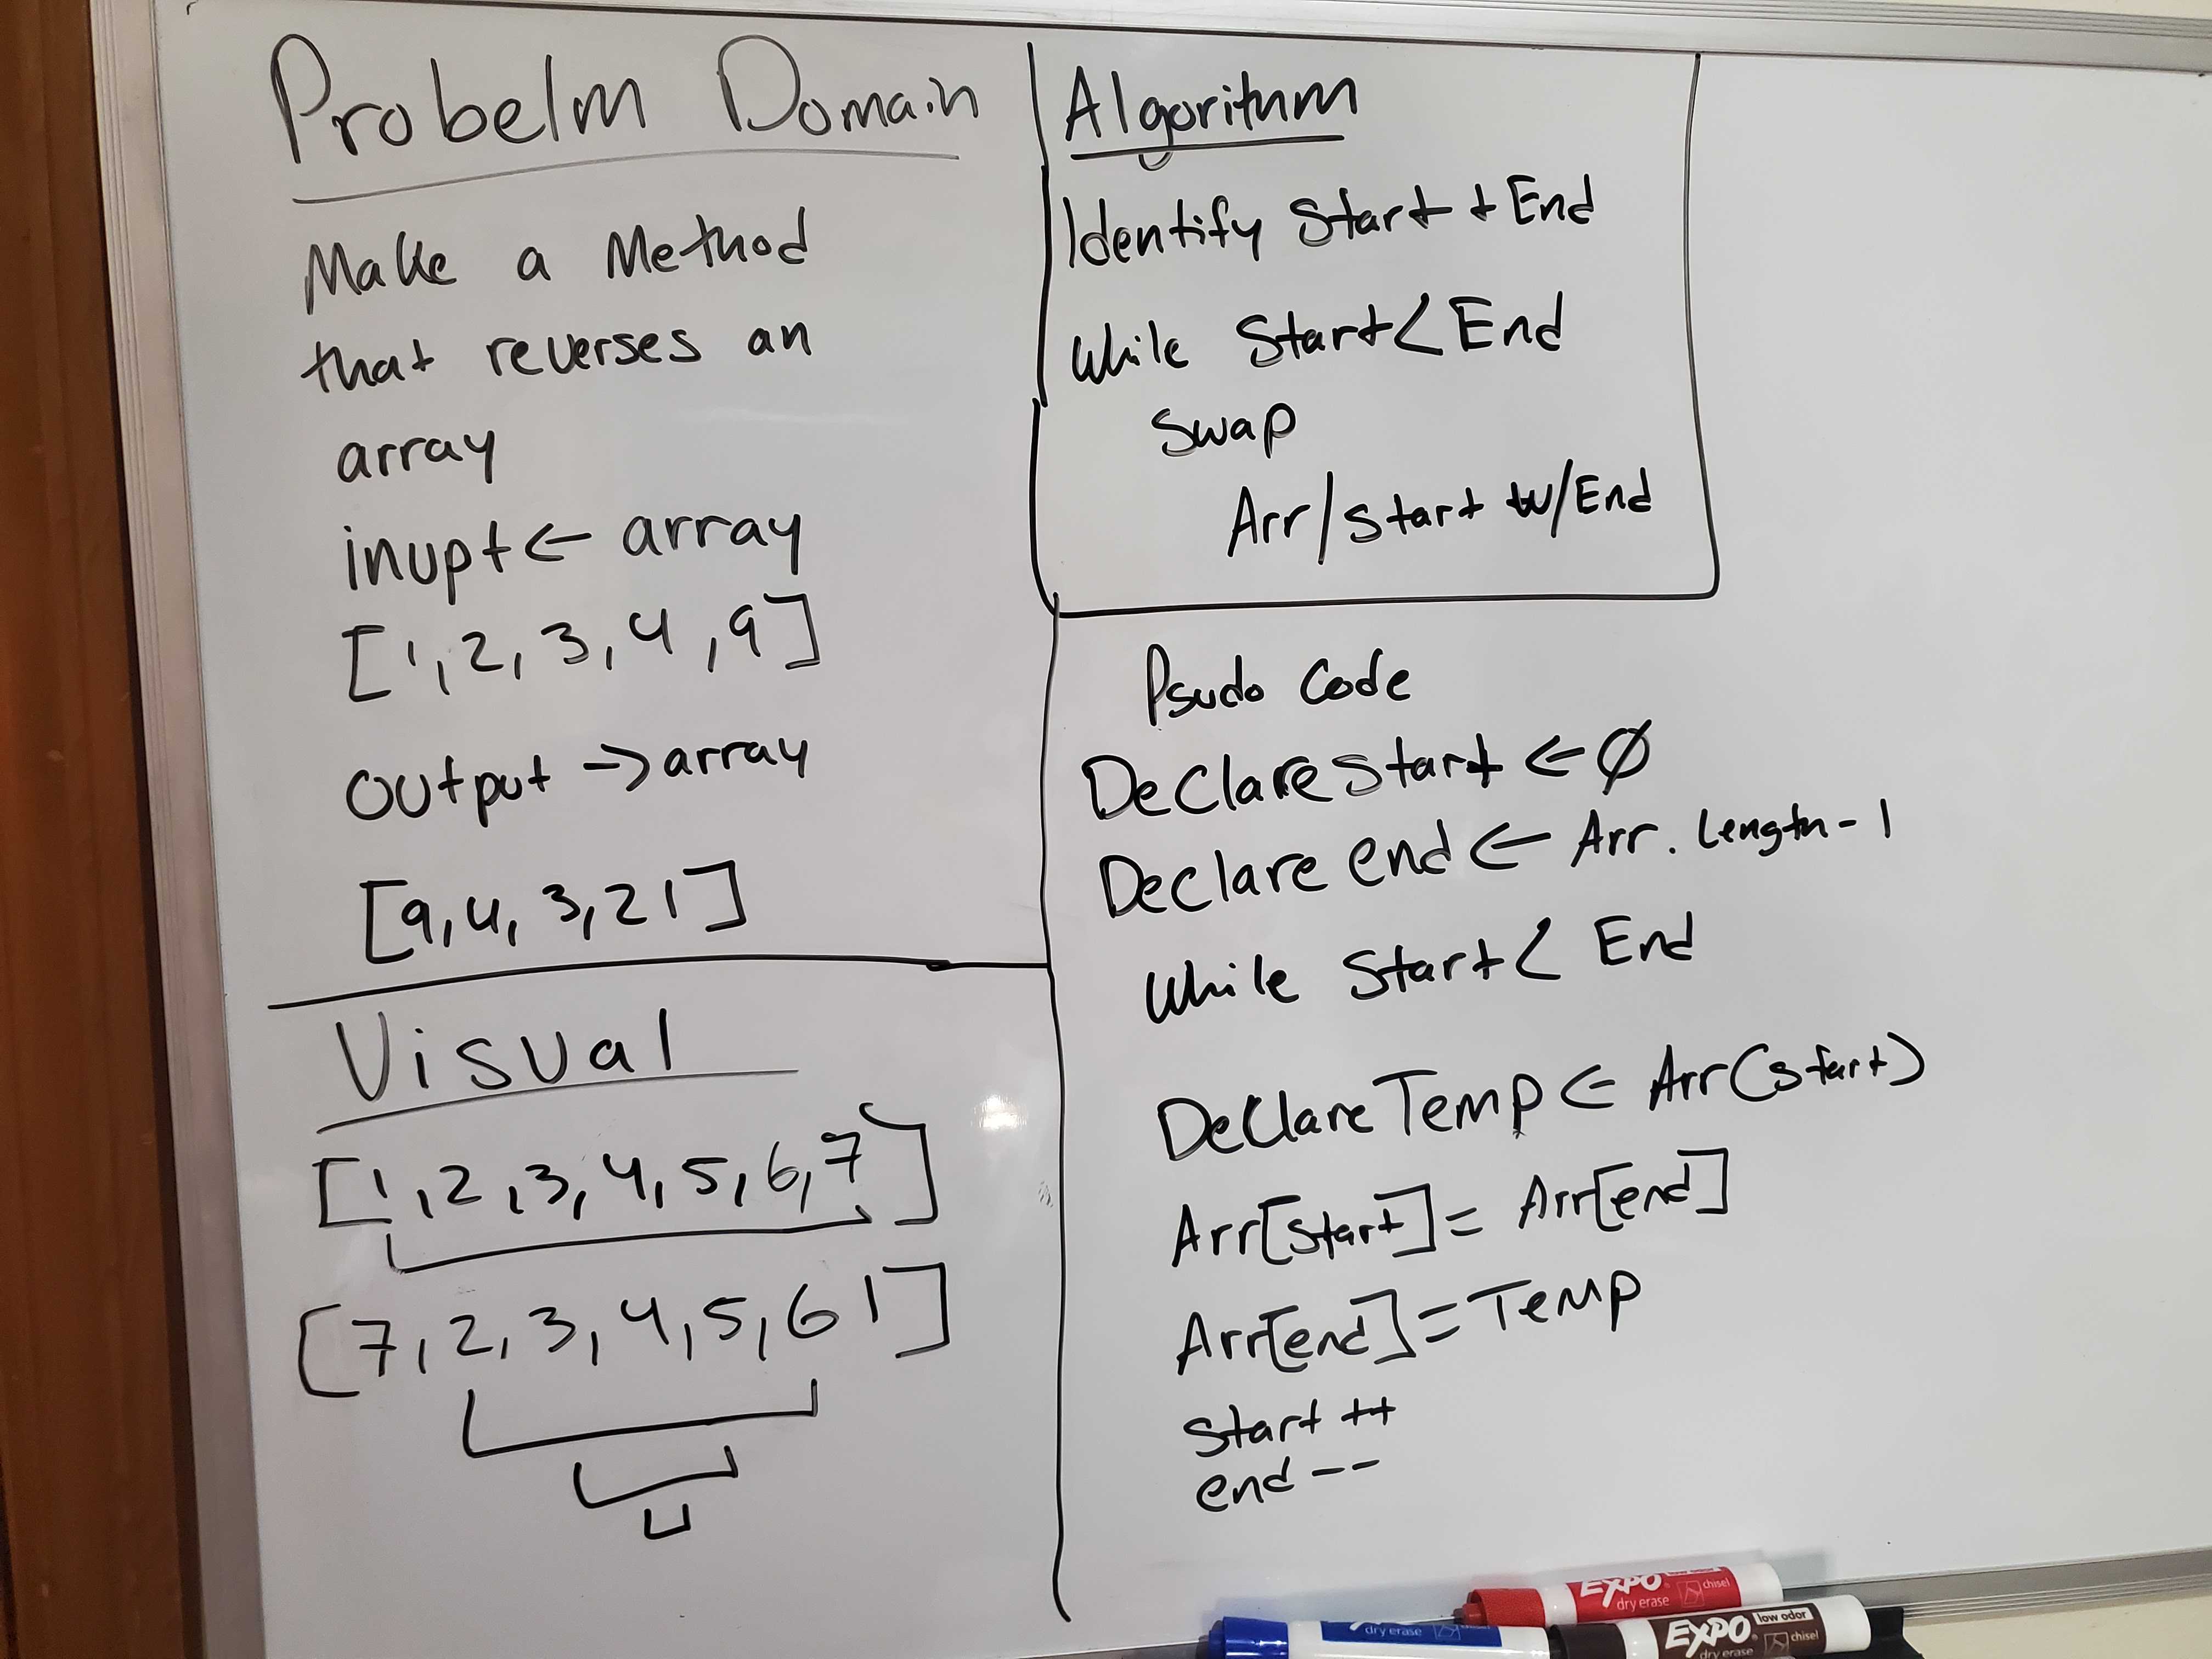 Probelm Domain
Make a Method
that reverses an
array
inupt ← array
[1, 2, 3, 4, 9]
output -> array
[9, 4, 3, 2 1]
Visual
[1, 2, 3, 4, 5, 6, 7]
[7, 2, 3, 4, 5, 6 1]
Algorithm
Identify Start + End
While Start < End
Swap
Arr/start w/End
Psudo Code
Declare start ← Ø
Declare end ← Arr. Length - 1
While Start < End
Declare Temp ← Arr(start)
Arr[start] = Arr[end]
Arr[end] = Temp
Start ++
end --
EXPO chisel
dry erase
dry erase
EXPO low odor
chisel
dry erase